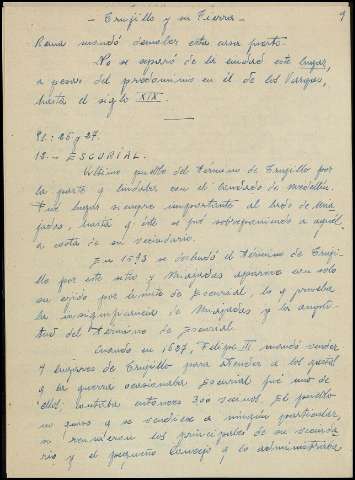 - Trujillo y su Tierra -
9
Reina mandó demoler esta casa fuerte.
No se separó de la ciudad este lugar,
a pesar del predominio en él de los Vargas,
hasta el siglo XIX.
Pl: 26 y 27.
12.- ESCURIAL.
Ultimo pueblo del término de Trujillo por
la parte y lindales con el Condado de Medellín.
Fue lugar siempre importante al lado de Mia-
jadas, hasta que éste se fué sobreponiendo a aquél
a costa de su vecindario.
En 1593 se deslindó el término de Truji-
llo por este sitio y Miajadas aparece con solo
su ejido por límite de Escurial, lo que prueba
la insignificancia de Miajadas y la
del término de Escurial.
Cuando en 1627, Felipe IV mandó vender
9 lugares de Trujillo para atender a los gastos
que la guerra ocasionaba Escurial fué uno de
ellos, contaba entonces 300 vecinos. El pueblo
no quiso que se vendiese a ningún particular,
se reunieron los principales de su vecinda
rio y el pequeño Concejo que lo administraba